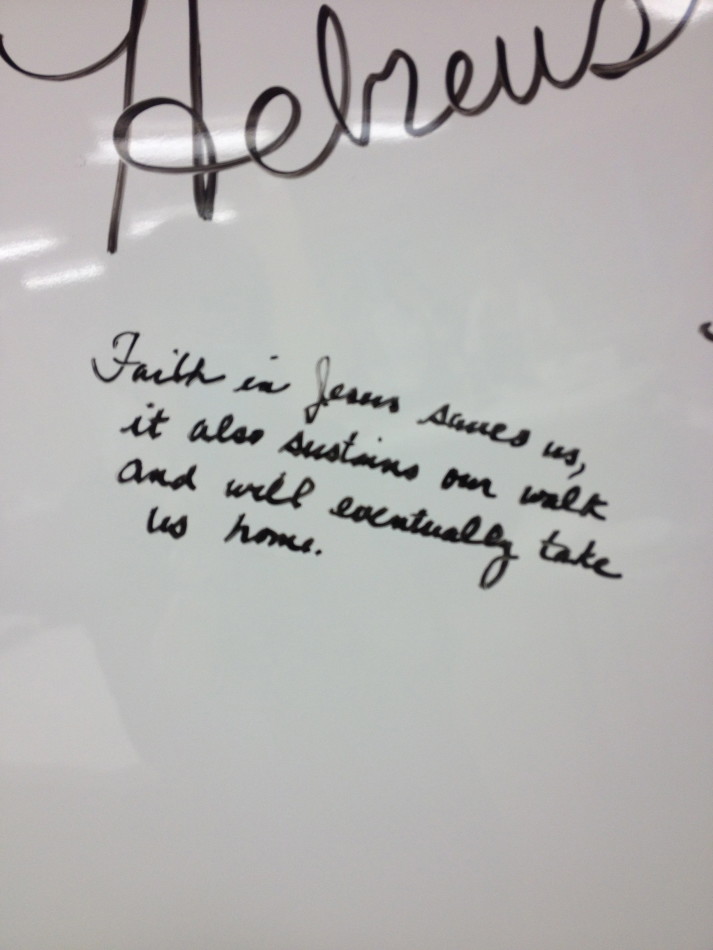 Hebrews
Faith in Jesus saves us,
it also sustains our walk
and will eventually take
us home.